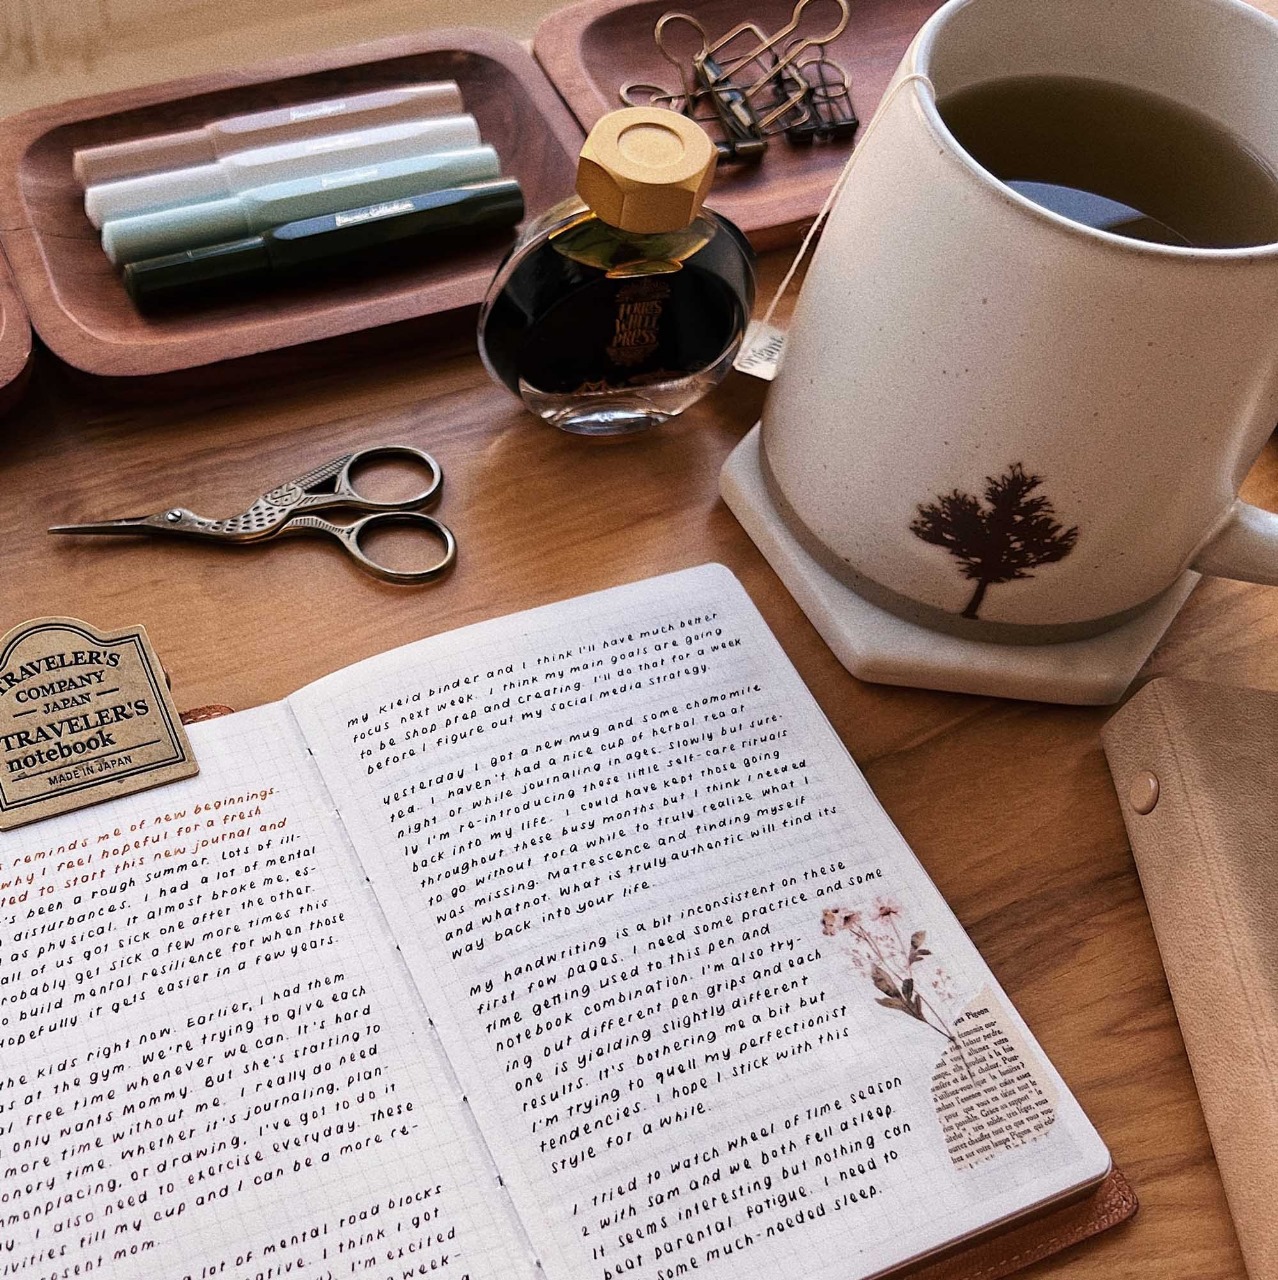 FERRIS
WHEEL
PRESS
TRAVELER'S
COMPANY
JAPAN
TRAVELER'S
notebook
MADE IN JAPAN
reminds me of new beginnings.
why I feel hopeful for a fresh
to start this new journal and
been a rough summer. Lots of ill-
disturbances. I had a lot of mental
as physical. It almost broke me, es-
all of us got sick one after the other.
get sick a few more times this
build mental resilience for when those
it gets easier in a few years.
the kids right now. Earlier, I had them
at the gym. We're trying to give each
free time whenever we can. It's hard
only wants Mommy. But she's starting to
more time without me. I really do need
time. Whether it's journaling, plan-
or drawing, I've got to do it
I also need to exercise everyday. These
till my cup and I can be a more re-
mom.
a lot of mental road blocks
I think I got
I'm excited
week-
my Kleid binder and I think I'll have much better
focus next week. I think my main goals are going
to be shop prep and creating. I'll do that for a week
before I figure out my social media strategy.
Yesterday I got a new mug and some chamomile
tea. I haven't had a nice cup of herbal tea at
night or while journaling in ages. Slowly but sure-
ly I'm re-introducing these little self-care rituals
back into my life. I could have kept those going
throughout these busy months but I think I needed
to go without for a while to truly realize what I
was missing. Matrescence and finding myself
and whatnot. What is truly authentic will find its
way back into your life.
My handwriting is a bit inconsistent on these
first few pages. I need some practice and some
time getting used to this pen and
notebook combination. I'm also try-
ing out different pen grips and each
one is yielding slightly different
results. It's bothering me a bit but
I'm trying to quell my perfectionist
tendencies. I hope I stick with this
style for a while.
I tried to watch Wheel of Time season
2 with Sam and we both fell asleep.
It seems interesting but nothing can
beat parental fatigue. I need to
some much-needed sleep.
Pigeon